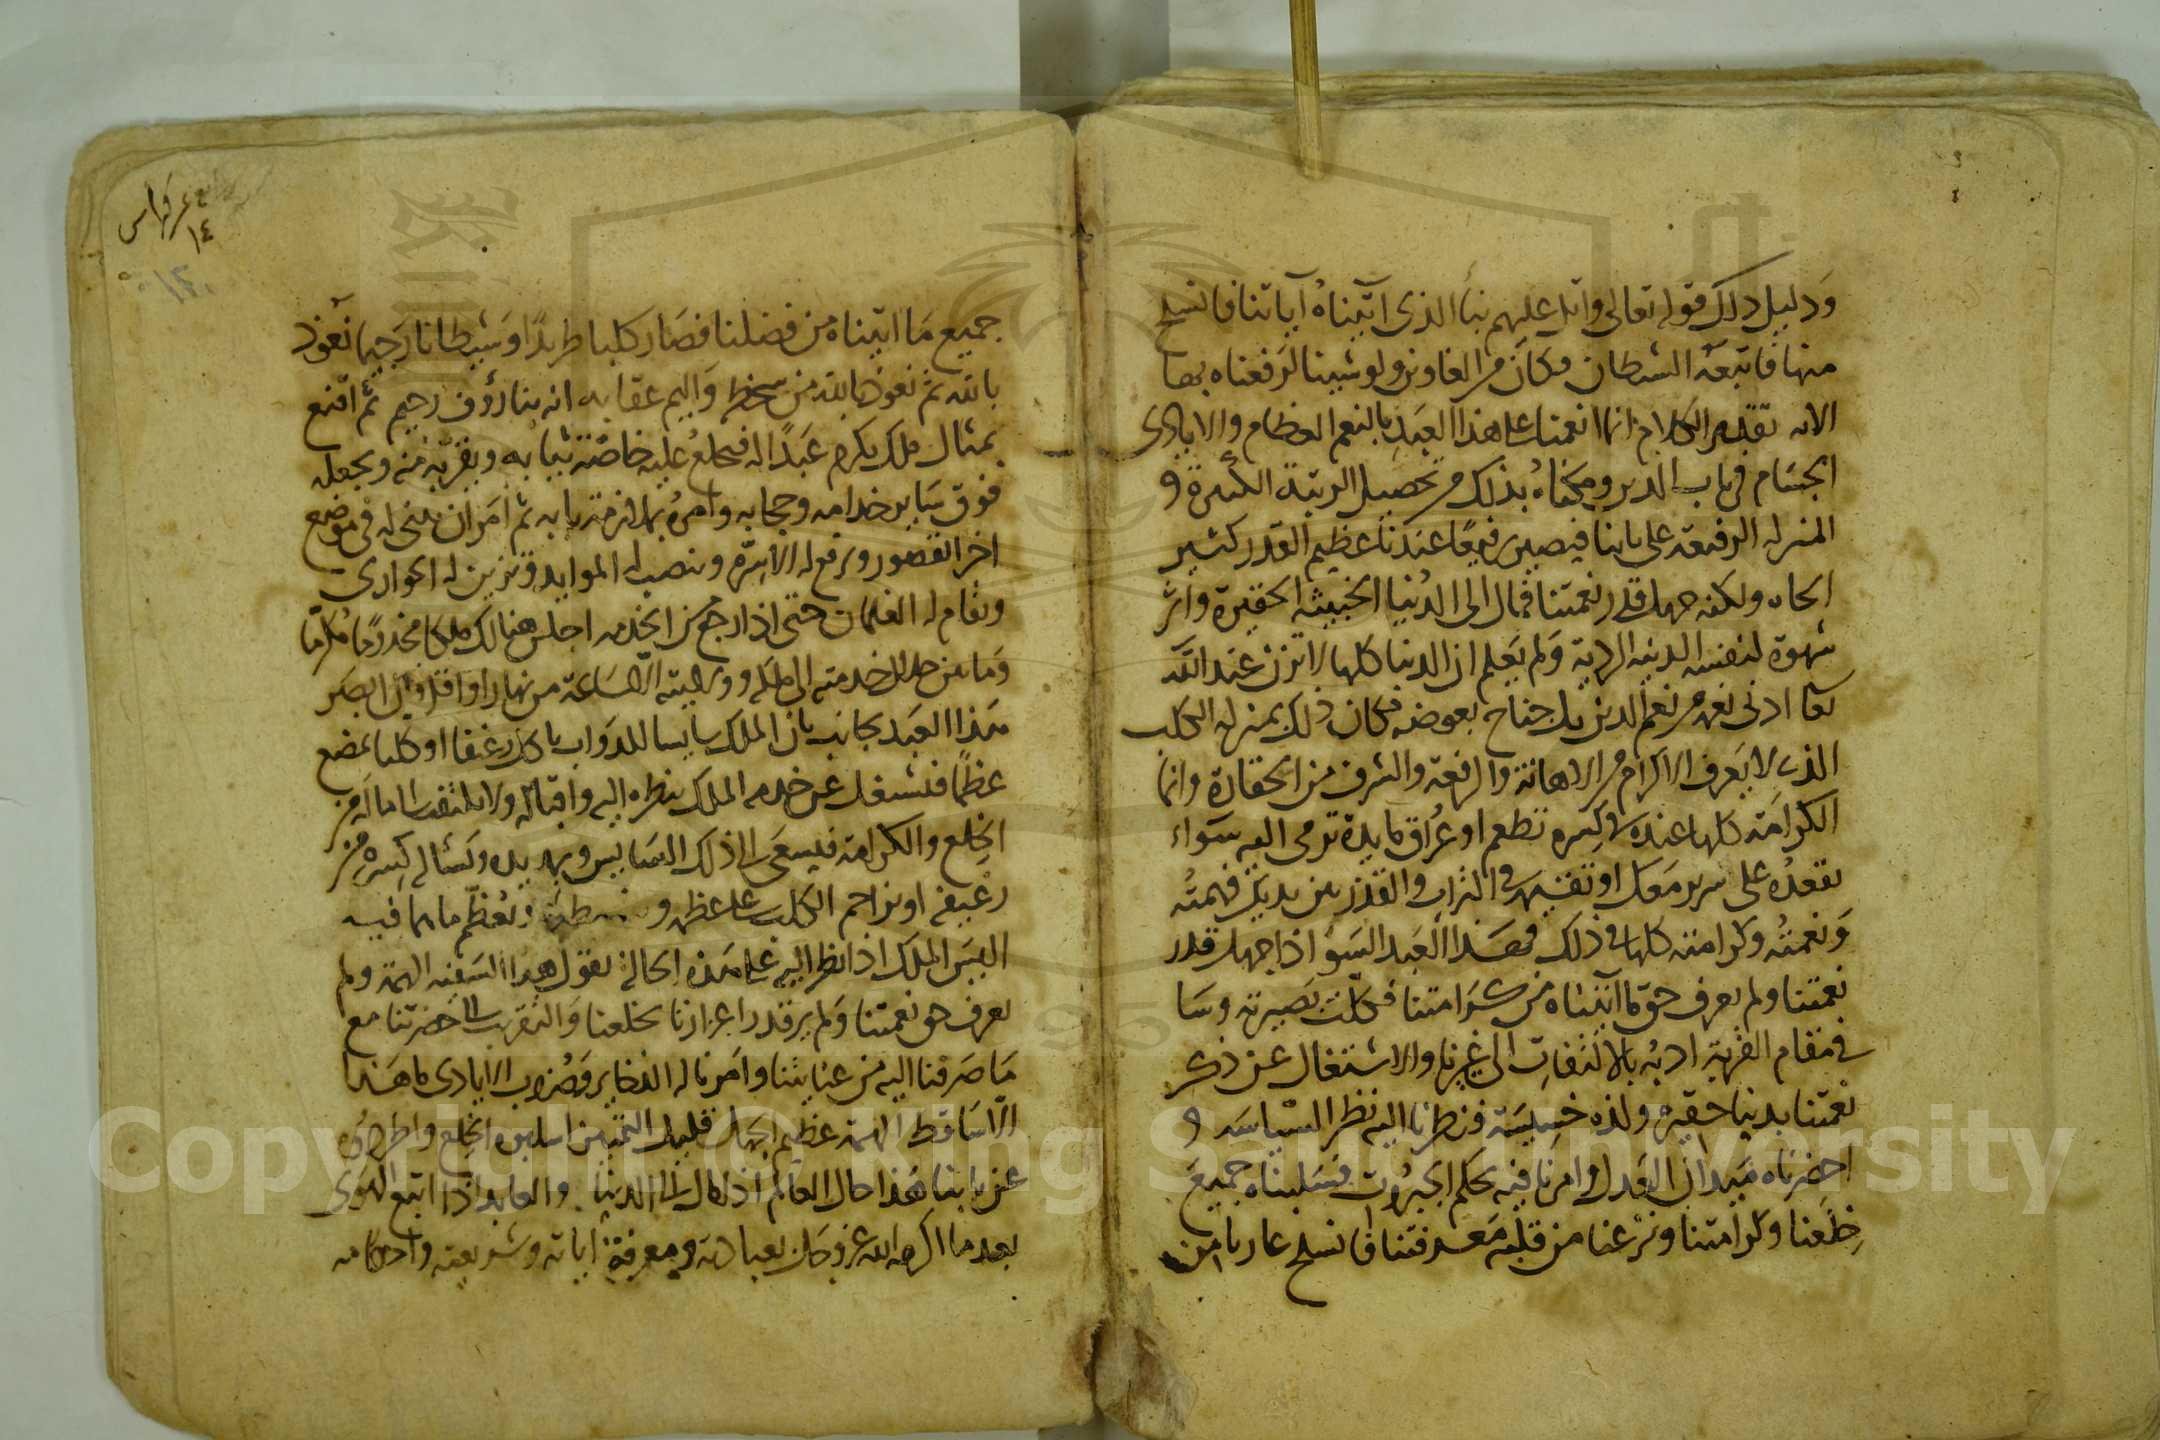 ودليل ذلك قوله تعالى واتل عليهم نبأ الذي آتيناه آياتنا فانسلخ
منها فاتبعه الشيطان فكان من الغاوين ولو شينا لرفعناه بها
الايه تقدير الكلام انما انعمنا على هذا العبد بالنعم العظام والايادي
الجسام في باب الدين ومكناه بذلك من تحصيل الرتبة الكبيرة و
المنزله الرفيعة على بابنا فيصير رفيعا عندنا عظيم القدر كثير
الجاه ولكنه جهل قدر نعمتنا فمال الى الدنيا الخبيثه الحقيرة واثر
شهوة لنفسه الدنيه الرديه ولم يعلم ان الدنيا كلها لا تزن عند الله
ادنى نعمه من نعم الدين بل جناح بعوضه فكان ذلك بمنزله الكلب
الذي لا يعرف الاكرام من الاهانة والرفعة والشرف من الحقارة وانما
الكرامة كلها عنده في كسره تطعم او عراق مايدة ترمى اليه سواء
تقعده على سرير معك او تقيمه في التراب والقذر بين يديك فهمته
ونعمته وكرامته كلها في ذلك فهذا العبد السوء اذا جهل قدر
نعمتنا ولم يعرف حق ما آتيناه من كرامتنا فكلت بصيرته وسا
في مقام القربة ادبه بالالتفات الى غيرنا والاشتغال عن ذكر
نعمتنا بدنيا حقيره ولذه خسيسة فنظرنا اليه نظر السياسه و
احضرناه ميدان العدل وامرنا فيه بحكم الجبروت فسلبناه جميع
خلعنا وكرامتنا ونزعنا من قلبه معرفتنا فانسلخ عاريا من
٤
١٤
جميع ما اتيناه من فضلنا فصار كلبا طريدا وشيطانا رجيما نعوذ
بالله ثم نعوذ بالله من سخطه واليم عقابه انه بنا رؤف رحيم ثم اقنع
بمثال ملك يكرم عبدا له فيخلع عليه خاصة ثيابه ويقربه منه ويجعله
فوق ساير خدامه وحجابه وامره بملازمة بابه ثم امر ان يبنى له في موضع
اخر القصور ويرفع له الاسرة وينصب له الموايد وتزين له الجواري
ويقام له الغلمان حتى اذا رجع من الخدمه اجلس هنالك ملكا مخدوما مكرما
وما بين حال خدمته الى ملكه وولايته الا ساعة من نهار او اقل فان ابصر
هذا العبد بجانب باب الملك سايسا للدواب ياكل رغيفا او كلبا يمضغ
عظما فيشتغل عن خدمه الملك بنظره اليه واقباله ولا يلتفت الى ما له من
الخلع والكرامة فيسعى الى ذلك السايس ويمد يده ويسأله كسره من
رغيفه او يزاحم الكلب على عظمه ويعظم ما هما فيه
اليس الملك اذا نظر اليه على هذه الحالة يقول هذا السفيه الهمة ولم
يعرف حق نعمتنا ولم ير قدر اعزازنا بخلعنا والتقريب الى حضرتنا مع
ما صرفنا اليه من عنايتنا وامرنا له الذخاير وضروب الايادي ما هذا
الا ساقط الهمة عظيم الجهل قليل التمييز اسلبوه الخلع واطردوه
عن بابنا هذا حال العالم اذا مال الى الدنيا والعابد اذا اتبع الهوى
بعد ما اكرمه الله عز وجل بعبادته ومعرفة اياته وشريعته واحكامه